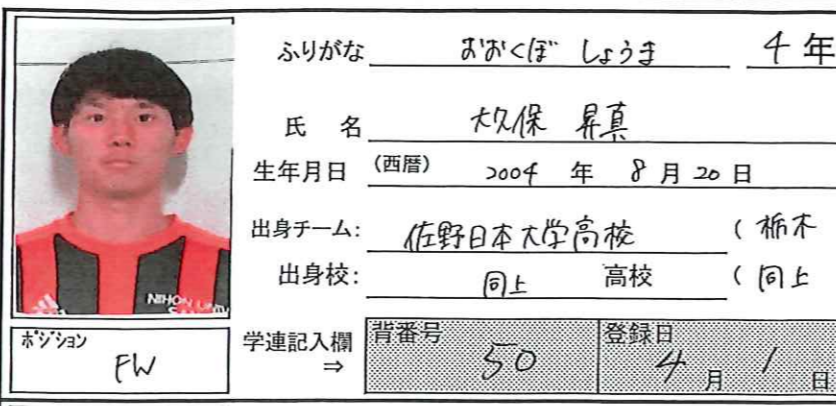 ふりがな おおくぼ しょうま 4年
氏 名 大久保 昇真
生年月日 (西暦) 2004 年 8 月 20 日
出身チーム: 佐野日本大学高校 ( 栃木
出身校: 同上 高校 ( 同上
NIHON UNIV
ポジション
FW
学連記入欄
⇒
背番号
50
登録日
4 月 1 日